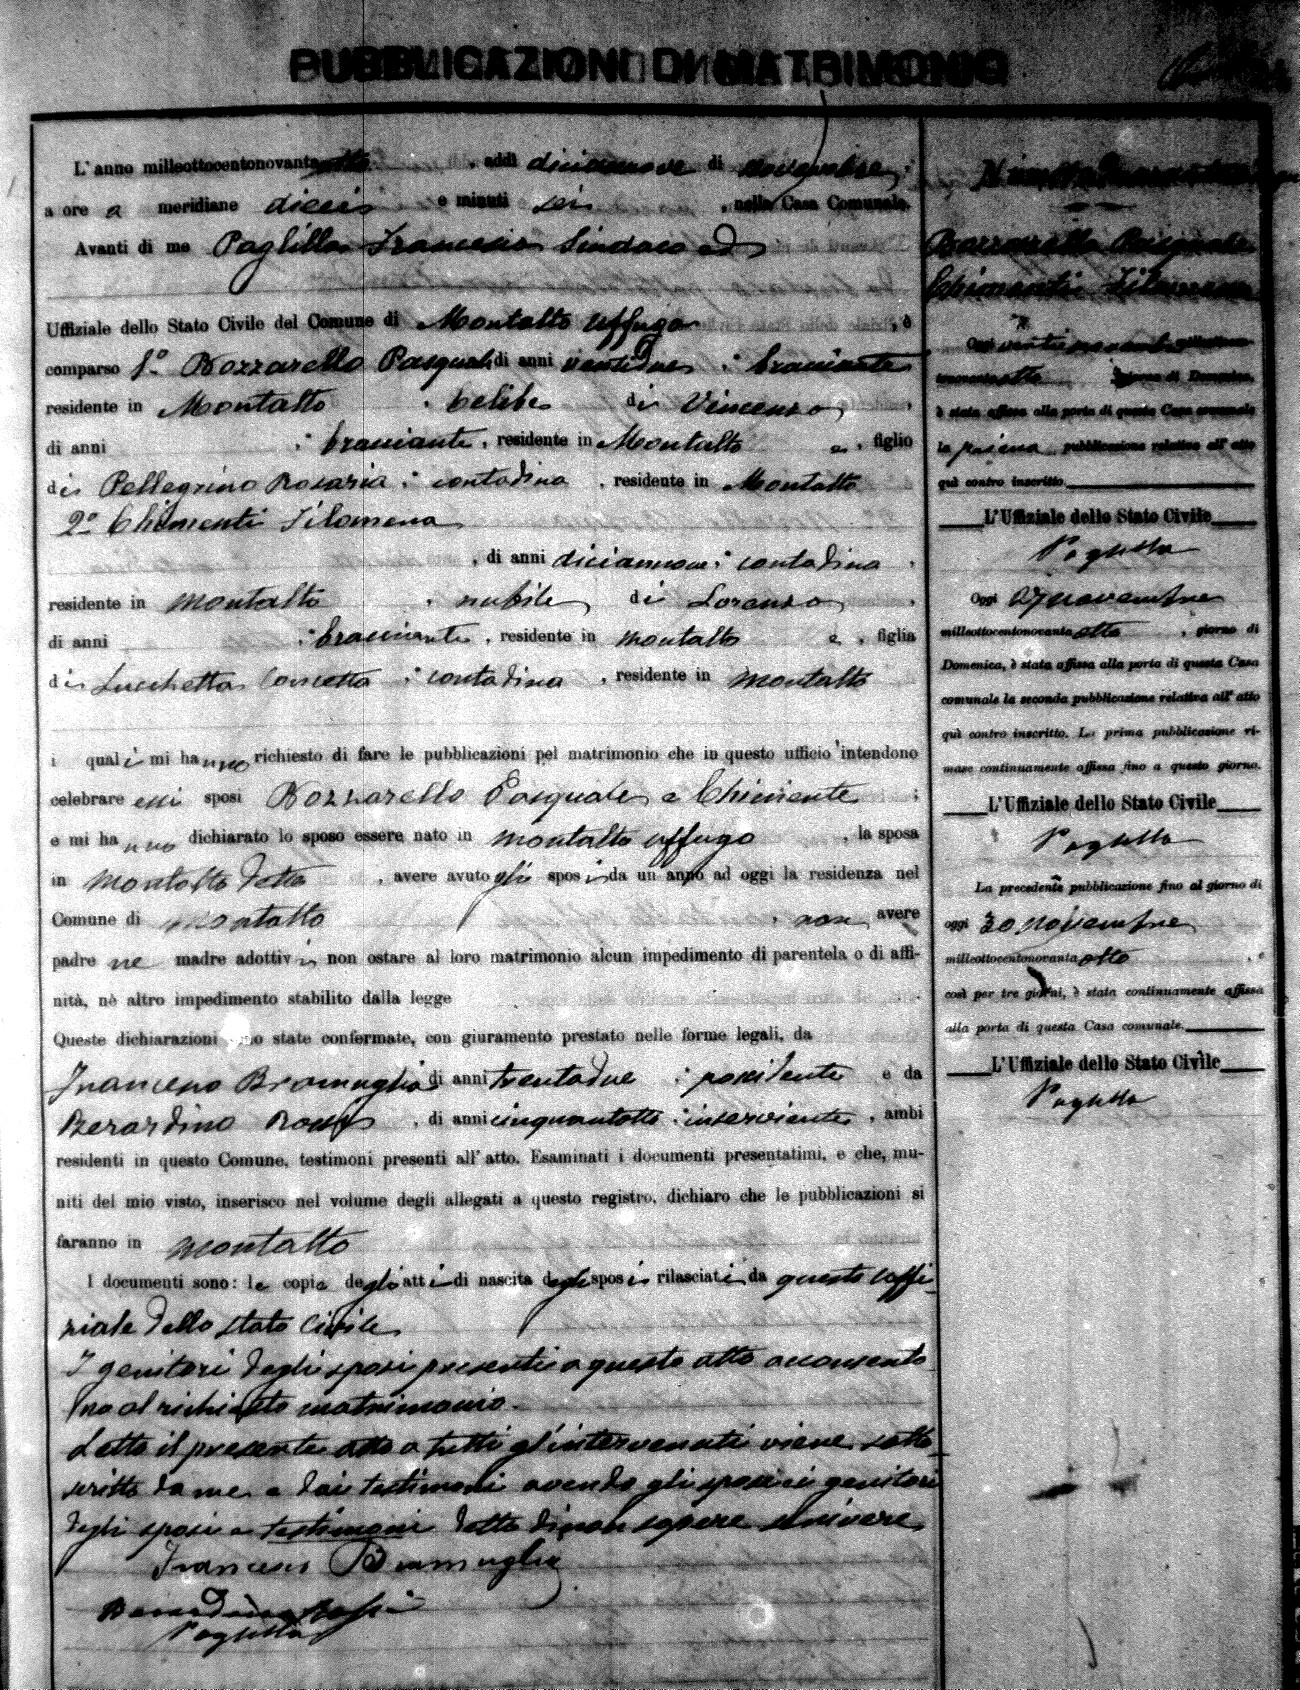 PUBBLICAZIONI DI MATRIMONIO
L'anno milleottocentonovanta otto, addì diciannove di novembre,
a ore a meridiane dieci e minuti sei, nella Casa Comunale.
Avanti di me Paglilla Francesco Sindaco ed
Uffiziale dello Stato Civile del Comune di Montalto Uffugo, è
comparso 1º Bozzarello Pasquale di anni ventidue; bracciante
residente in Montalto, celibe, di Vincenzo,
di anni ; bracciante, residente in Montalto e, figlio
di Pellegrino Rosaria; contadina, residente in Montalto
2º Chimenti Filomena
, di anni diciannove; contadina,
residente in Montalto, nubile, di Lorenzo,
di anni ; bracciante, residente in Montalto e, figlia
di Lucchetta Concetta; contadina, residente in Montalto
i quali mi hanno richiesto di fare le pubblicazioni pel matrimonio che in questo ufficio intendono
celebrare essi sposi Bozzarello Pasquale e Chimente;
e mi hanno dichiarato lo sposo essere nato in Montalto Uffugo, la sposa
in Montalto detto, avere avuto gli sposi da un anno ad oggi la residenza nel
Comune di Montalto, non avere
padre ne madre adottivi non ostare al loro matrimonio alcun impedimento di parentela o di affi-
nità, nè altro impedimento stabilito dalla legge
Queste dichiarazioni sono state confermate, con giuramento prestato nelle forme legali, da
Francesco Bramuglia di anni trentadue; possidente e da
Berardino Rossi, di anni cinquantotto; inserviente, ambi
residenti in questo Comune, testimoni presenti all'atto. Esaminati i documenti presentatimi, e che, mu-
niti del mio visto, inserisco nel volume degli allegati a questo registro, dichiaro che le pubblicazioni si
faranno in Montalto
I documenti sono: le copie degli atti di nascita degli sposi rilasciati da questo Uffi-
ziale dello stato Civile
I genitori degli sposi presenti a questo atto acconsento
no al richiesto matrimonio.
Letto il presente atto a tutti gl'intervenuti viene sotto
scritto da me e dai testimoni avendo gli sposi ei genitori
degli sposi e testimoni detto di non sapere scrivere
Francesco Bramuglia
Berardino Rossi
Paglilla
Bozzarello Pasquale
Chimenti Filomena
Oggi venti novembre milleottocen-
tonovanta otto giorno di Domenica,
è stata affissa alla porta di questa Casa comunale
la prima pubblicazione relativa all'atto
quì contro inscritto
L'Uffiziale dello Stato Civile
Paglilla
Oggi 27 novembre
milleottocentonovanta otto, giorno di
Domenica, è stata affissa alla porta di questa Casa
comunale la seconda pubblicazione relativa all'atto
quì contro inscritto. La prima pubblicazione ri-
mase continuamente affissa fino a questo giorno.
L'Uffiziale dello Stato Civile
Paglilla
La precedente pubblicazione fino al giorno di
oggi 30 novembre
milleottocentonovanta otto, e
così per tre giorni, è stata continuamente affissa
alla porta di questa Casa comunale.
L'Uffiziale dello Stato Civile
Paglilla